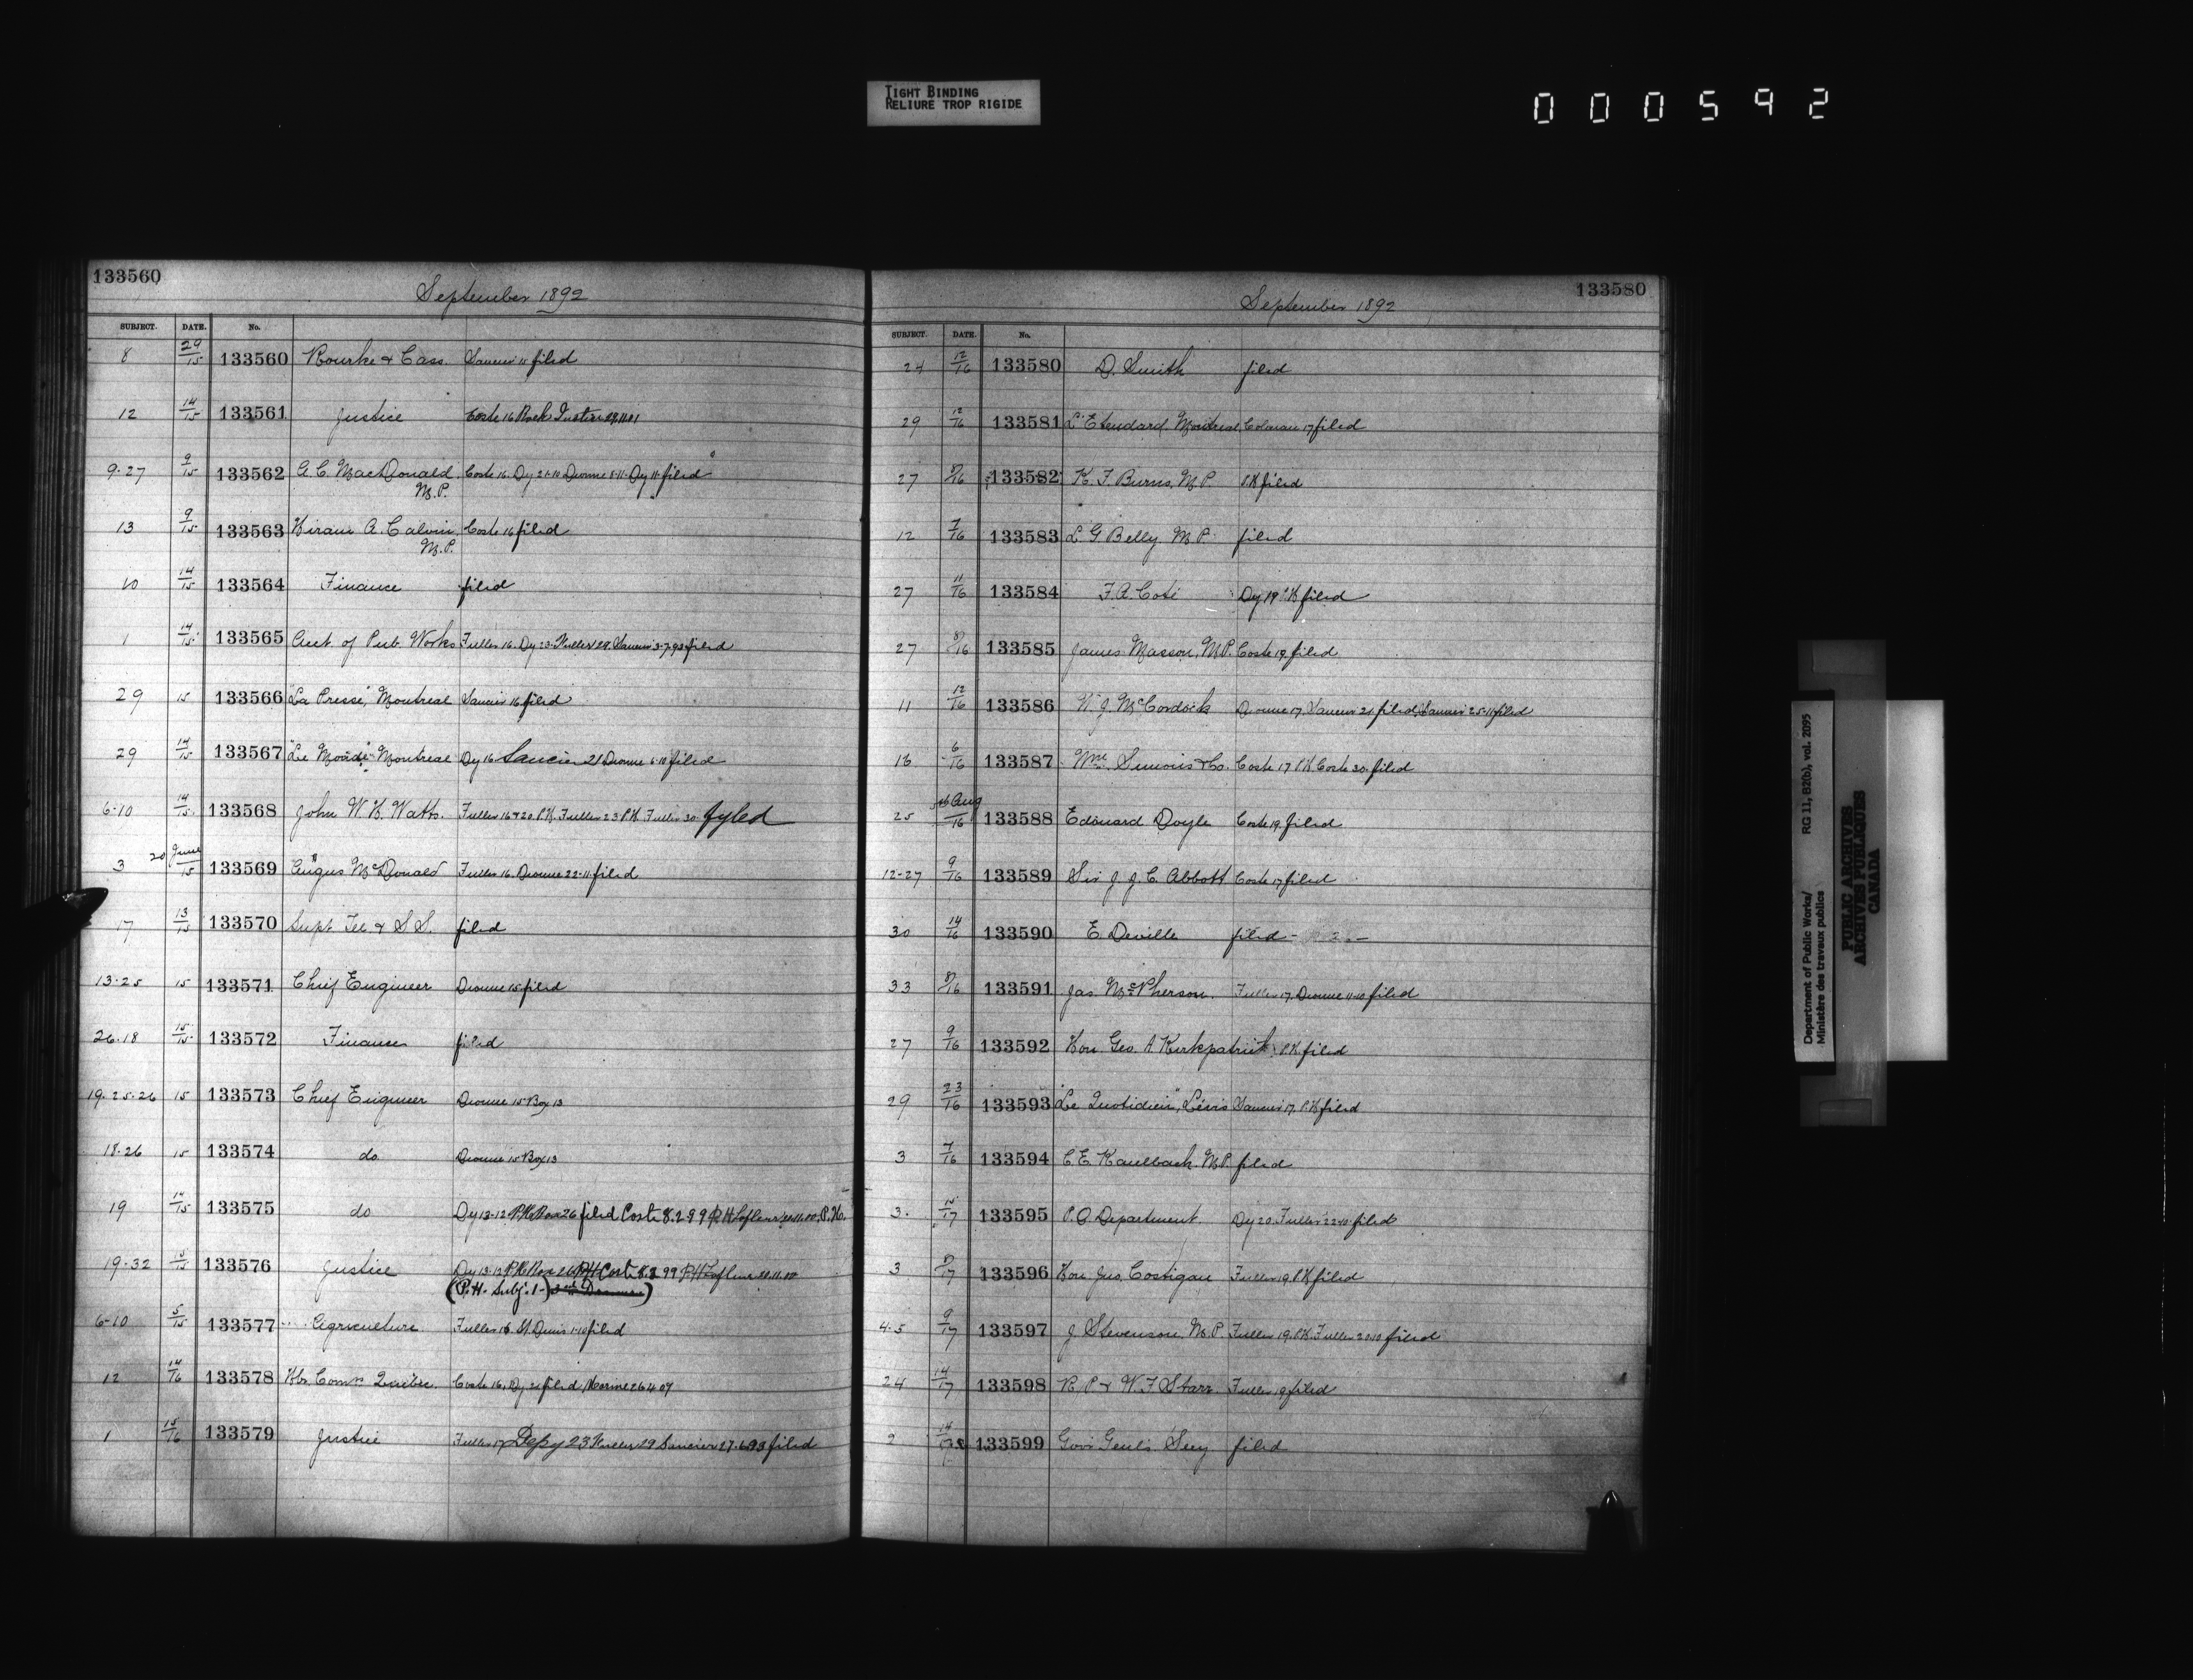 TIGHT BINDING
RELIURE TROP RIGIDE
000592
133560
September 1892
SUBJECT. DATE. No.
8 29/15 133560 Rourke & Cass. Saucier 11 filed
12 14/15 133561 Justice Coste 16
9-27 9/15 133562 A. C. MacDonald Coste 16. Dy 21-10 Dionne 8-11. Dy 11. filed
M.P.
13 9/15 133563 Hiram A. Calvin Coste 16 filed
M.P.
10 14/15 133564 Finance filed
1 14/15 133565 of Pub. Works Fuller 16. Dy 23. Fuller 29. Saucier 3-7-93 filed
29 15 133566 "La Presse", Montreal Saucier 16 filed
29 14/15 133567 "Le Monde" Montreal Dy 16 Saucier 21 Dionne 6-10 filed
6-10 14/15 133568 John W. H. Watts. Fuller 16 & 20. P.K. Fuller 23 P.K. Fuller 30. fyled
3 20 June/15 133569 Angus McDonald Fuller 16. Dionne 22-11 filed
17 13/15 133570 Supt Tel. & S S. filed
13-25 15 133571 Chief Engineer Dionne 15 filed
26-18 15/15 133572 Finance filed
19-25-26 15 133573 Chief Engineer Dionne 15 Box 13
18-26 15 133574 do Dionne 15 Box 13
19 14/15 133575 do Dy 13-12 P.K. Box 26 filed Coste 8.2.99 P.H. Lafleur P.H.
19-32 15/15 133576 Justice Dy 13-12 P.K. Box 26 P.H. Coste 8.2.99 P.H. Lafleur
(P.H. Subj. 1-)
6-10 5/15 133577 Agriculture Fuller 16 St. Denis 1-10 filed
12 14/16 133578 Hbr. Comrs. Quebec. Coste 16. Dy 21 filed, Marine 26 4 07
1 15/16 133579 Justice Fuller 17 Depy 23 Fuller 29 Saucier 27-6-93 filed
133580
September 1892
SUBJECT. DATE. No.
24 12/16 133580 D. Smith filed
29 12/16 133581 L'Etendard. Montreal. Colman 17 filed
27 8/16 133582 K. F. Burns, M.P. P.K filed
12 7/16 133583 L. G Belly M P. filed
27 11/16 133584 F. A. Coté Dy 19 P.K filed
27 8/16 133585 James Masson, M.P. Coste 19 filed
11 12/16 133586 W. J. McCordock Dionne 17. Saucier 21 filed, Saucier 25-11 filed
16 6/16 133587 Simons & Co. Coste 17 P.K Coste 30. filed
25 Aug/16 133588 Edouard Doyle Coste 19 filed
12-27 9/16 133589 Sir J. J. C. Abbott Coste 17 filed
30 14/16 133590 E. Deville filed
33 8/16 133591 Jas. McPherson. Fuller 17. Dionne 11-10 filed
27 9/16 133592 Hon Geo. A Kirkpatrick P.K filed
29 23/16 133593 "Le Quotidien", Lévis Saucier 17. P.K filed
3 7/16 133594 C E. Kaulbach. M.P. filed
3. 15/17 133595 P. O Department. Dy 20. Fuller 22-10 filed
3 8/17 133596 Hon Jno. Costigan Fuller 19 P.K filed
4-5 9/17 133597 J. Stevenson. M. P. Fuller 19. P.K. Fuller 20-10 filed
24 14/17 133598 R. P & W. F Starr. Fuller 19 filed
2 14/ 133599 Gov. Genl's Secy filed
Department of Public Works/ RG 11, B2(b), vol. 2095
Ministère des travaux publics
PUBLIC ARCHIVES
ARCHIVES PUBLIQUES
CANADA